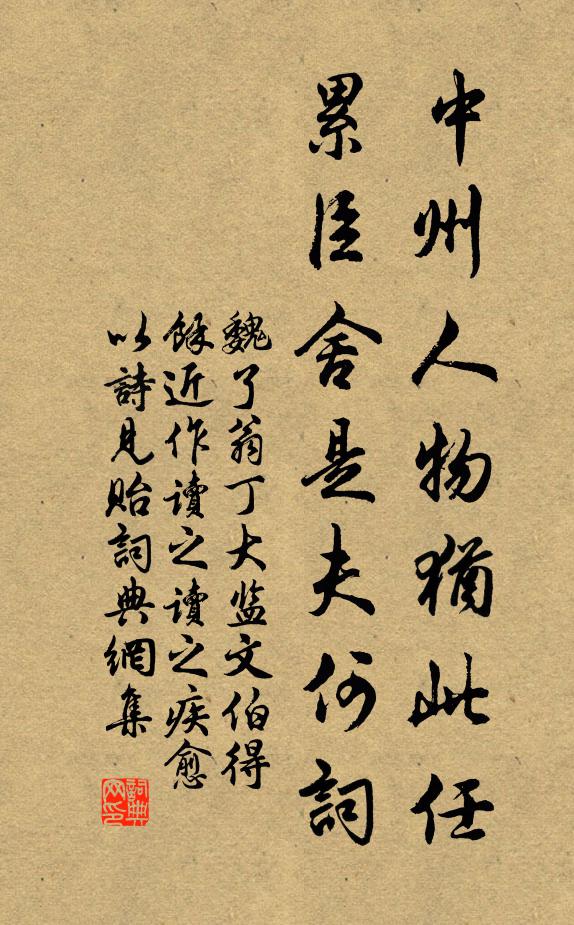 中州人物猶此任
累臣舍是夫何詞
魏了翁丁大监文伯得
餘近作讀之讀之疾愈
以詩見貽詞典網集
詞典
网印